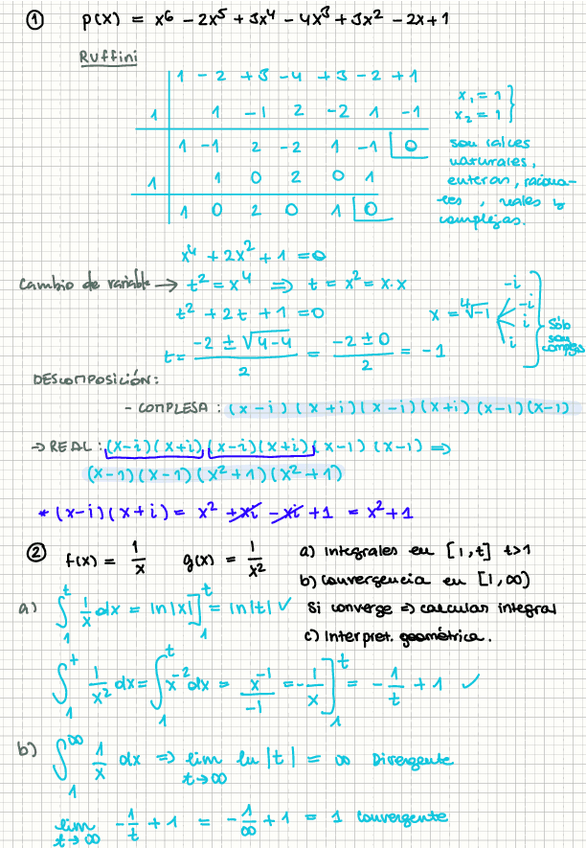 ① p(x) = x⁶ - 2x⁵ + 3x⁴ - 4x³ + 3x² - 2x + 1
Ruffini
1 - 2 + 3 - 4 + 3 - 2 + 1
1 1 -1 2 -2 1 -1
1 -1 2 -2 1 -1 0
1 1 0 2 0 1
1 0 2 0 1 0
x₁ = 1
x₂ = 1
son raíces
naturales,
enteras, raciona-
les, reales y
complejas.
x⁴ + 2x² + 1 = 0
Cambio de variable → t² = x⁴ ⇒ t = x² = x·x
t² + 2t + 1 = 0
t = (-2 ± √(4-4))/2 = (-2 ± 0)/2 = -1
x = ⁴√-1
-i
-i
i
i
Sólo
son
complejas
DESCOMPOSICIÓN:
- COMPLESA : (x-i)(x+i)(x-i)(x+i)(x-1)(x-1)
→ REAL : (x-i)(x+i)(x-i)(x+i)(x-1)(x-1) ⇒
(x-1)(x-1)(x²+1)(x²+1)
* (x-i)(x+i) = x² +xi -xi +1 = x²+1
② f(x) = 1/x g(x) = 1/x² a) Integrales en [1,t] t>1
b) convergencia en [1,∞)
Si converge ⇒ calcular integral
c) Interpret. geométrica.
a) ∫₁ᵗ 1/x dx = ln|x|]₁ᵗ = ln|t| ✓
∫₁ᵗ 1/x² dx = ∫₁ᵗ x⁻² dx = x⁻¹/-1 = -1/x]₁ᵗ = -1/t + 1 ✓
b) ∫₁^∞ 1/x dx ⇒ lim t→∞ ln|t| = ∞ Divergente
lim t→∞ -1/t + 1 = -1/∞ + 1 = 1 convergente